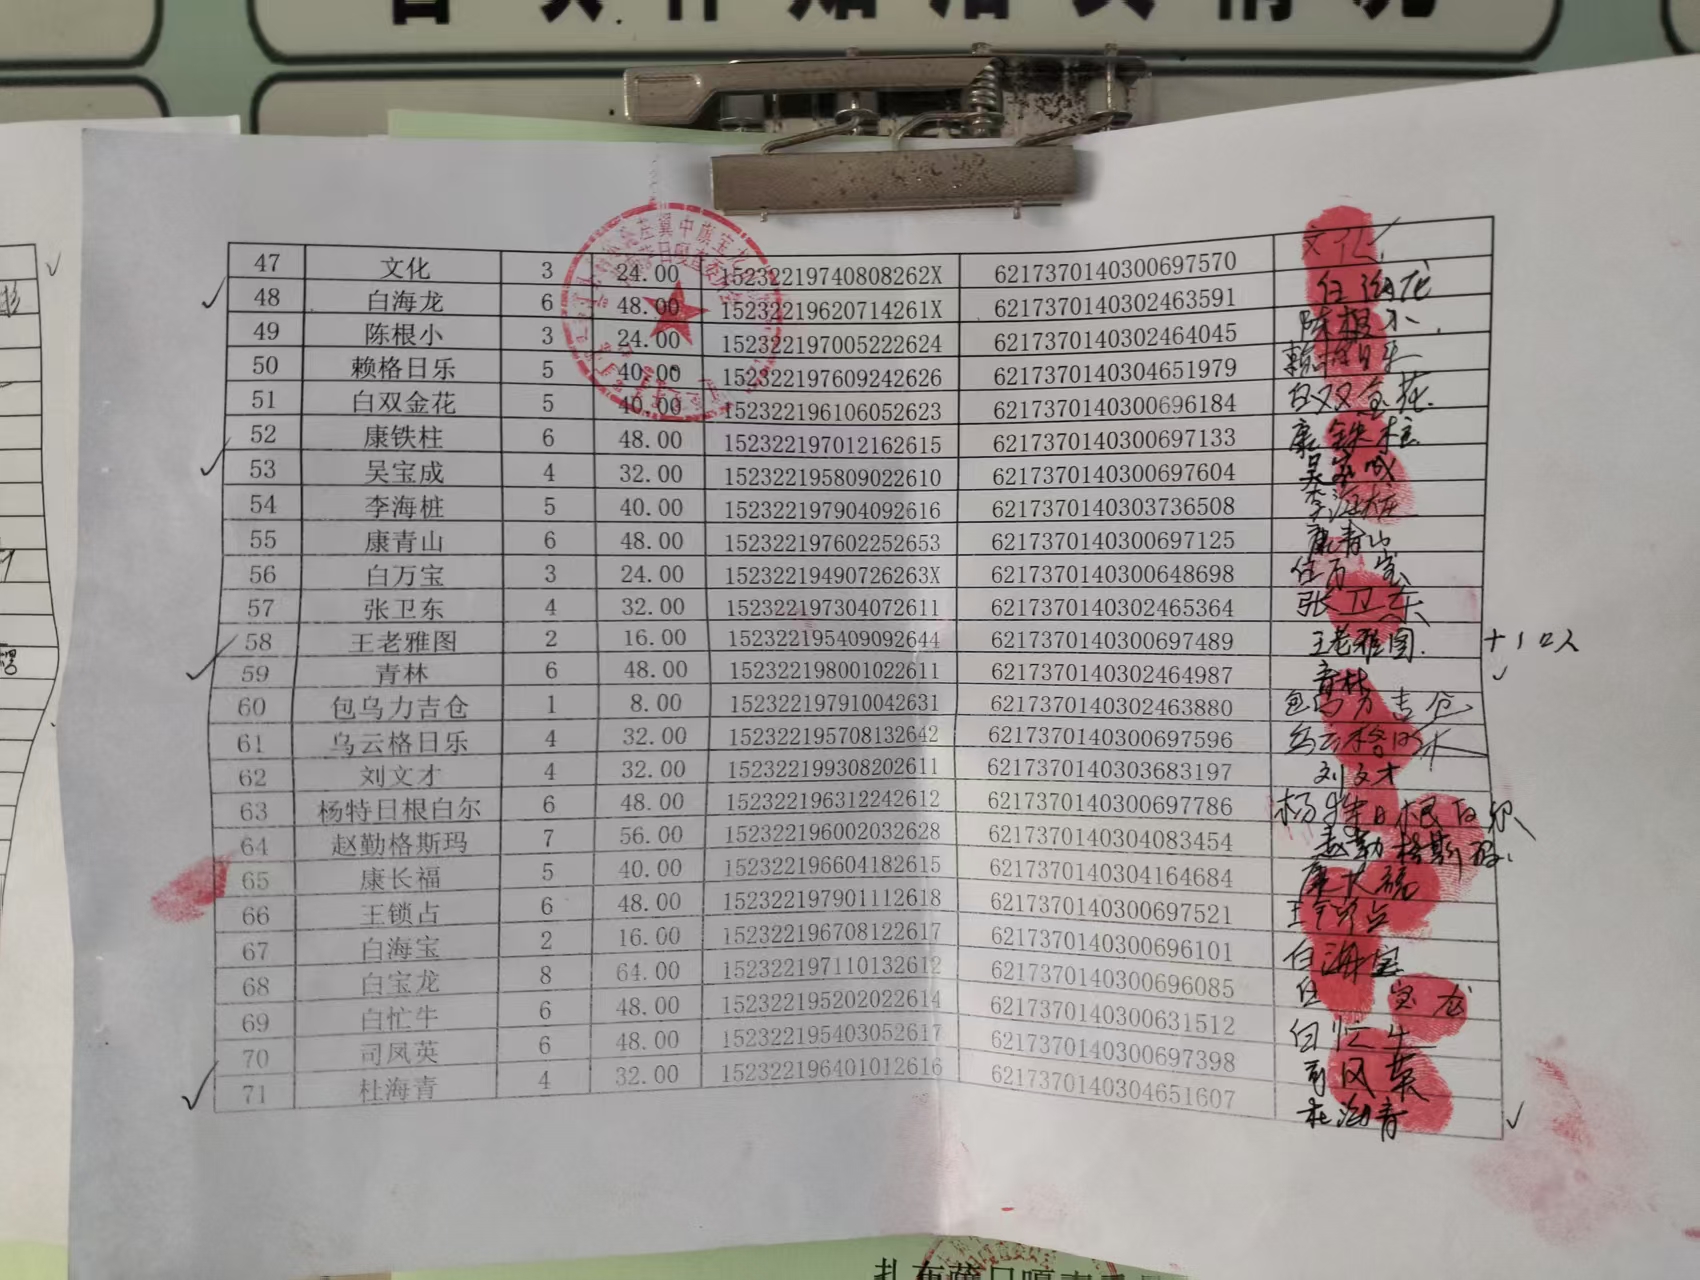 47 文化 3 24.00 15232219740808262X 6217370140300697570 文化
48 白海龙 6 48.00 15232219620714261X 6217370140302463591 白海龙
49 陈根小 3 24.00 152322197005222624 6217370140302464045 陈根小
50 赖格日乐 5 40.00 152322197609242626 6217370140304651979 赖格日乐
51 白双金花 5 40.00 152322196106052623 6217370140300696184 白双金花
52 康铁柱 6 48.00 152322197012162615 6217370140300697133 康铁柱
53 吴宝成 4 32.00 152322195809022610 6217370140300697604 吴宝成
54 李海桩 5 40.00 152322197904092616 6217370140303736508 李海桩
55 康青山 6 48.00 152322197602252653 6217370140300697125 康青山
56 白万宝 3 24.00 15232219490726263X 6217370140300648698 白万宝
57 张卫东 4 32.00 152322197304072611 6217370140302465364 张卫东
58 王老雅图 2 16.00 152322195409092644 6217370140300697489 王老雅图 +1口人
59 青林 6 48.00 152322198001022611 6217370140302464987 青林
60 包乌力吉仓 1 8.00 152322197910042631 6217370140302463880 包乌力吉仓
61 乌云格日乐 4 32.00 152322195708132642 6217370140300697596 乌云格日乐
62 刘文才 4 32.00 152322199308202611 6217370140303683197 刘文才
63 杨特日根白尔 6 48.00 152322196312242612 6217370140300697786 杨特日根白尔
64 赵勤格斯玛 7 56.00 152322196002032628 6217370140304083454 赵勤格斯玛
65 康长福 5 40.00 152322196604182615 6217370140304164684 康长福
66 王锁占 6 48.00 152322197901112618 6217370140300697521 王锁占
67 白海宝 2 16.00 152322196708122617 6217370140300696101 白海宝
68 白宝龙 8 64.00 152322197110132612 6217370140300696085 白宝龙
69 白忙牛 6 48.00 152322195202022614 6217370140300631512 白忙牛
70 司凤英 6 48.00 152322195403052617 6217370140300697398 司凤英
71 杜海青 4 32.00 152322196401012616 6217370140304651607 杜海青